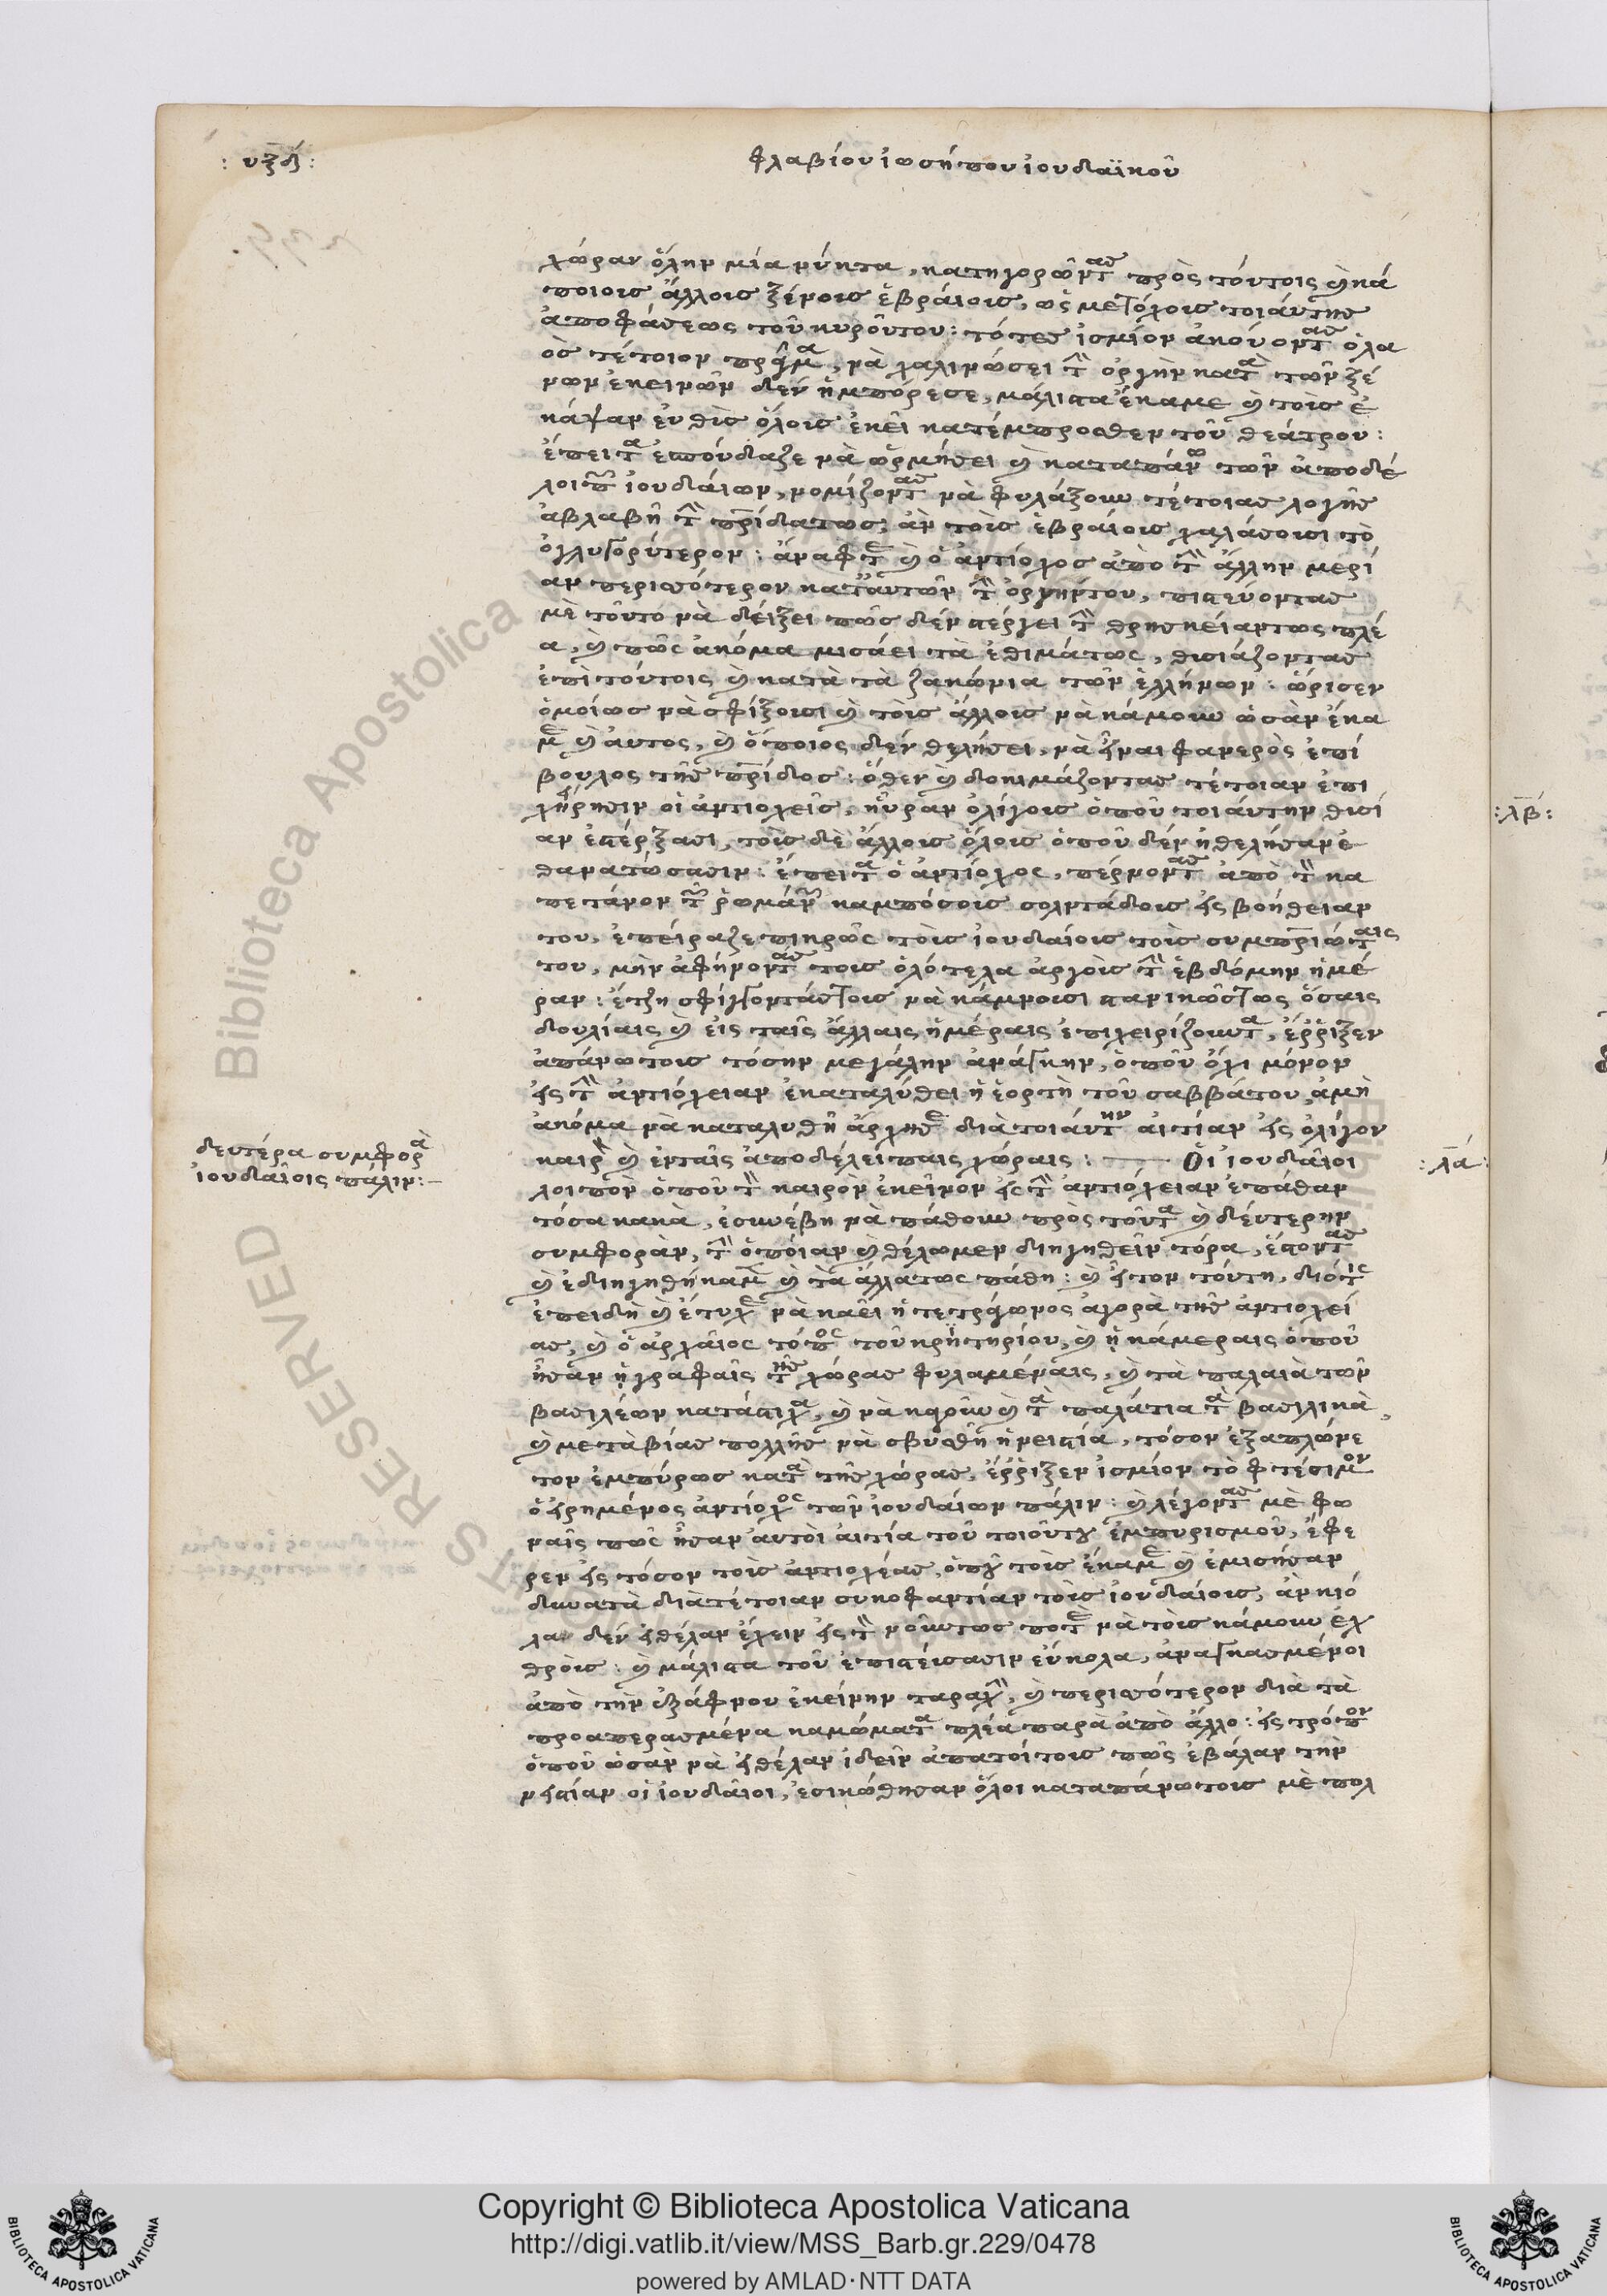 : υξδ :
φλαβίου ἰωσήπου ἰουδαϊκοῦ
χώραν ὅλην μία νύκτα, κατηγορῶντας πρὸς τούτοις καὶ κά
ποιους ἄλλους ξένους ἑβραίους, ὡς μετόχους τοιαύτης
ἀποφάσεως τοῦ κυροῦ του: τότες ἰσμίον ἀκούοντας ὁ λα
ὸς τέτοιον πρᾶγμα, νὰ χαλινώσει τὴν ὀργὴν κατὰ τῶν ξέ
νων ἐκεινῶν δὲν ἠμπόρεσε, μάλιστα ἔκαμε καὶ τοὺς ἐ
κάψαν εὐθὺς ὅλους ἐκεῖ κατέμπροσθεν τοῦ θεάτρου:
ἔπειτα ἐσπούδαξε νὰ ὁρμήσει καὶ καταπάνω τῶν ἀποδέ
λοιπων ἰουδαίων, νομίζοντας νὰ φυλάξουν τέτοιας λογῆς
ἀβλαβῆ τὴν πατρίδα τως, ἂν τοὺς ἑβραίους χαλάσουσι τὸ
ὀγλυγορύτερον: ἄναφτε καὶ ὁ ἀντίοχος ἀπὸ τὴν ἄλλην μερί
αν περισσότερον κατ' αὐτῶν τὴν ὀργήν του, πιστεύοντας
μὲ τοῦτο νὰ δείξει πῶς δὲν στέργει τὴν θρησκείαν τως πλέ
α, καὶ πῶς ἀκόμα μισάει τὰ ἔθιμά τως, θισιάζοντας
ἐπὶ τούτοις καὶ κατὰ τὰ ζακώνια τῶν ἑλλήνων: ὥρισεν
ὁμοίως νὰ σφίξουσι καὶ τοὺς ἄλλους νὰ κάμουν ὡσὰν ἔκα
με καὶ αὐτος, καὶ ὅποιος δὲν θελήσει, νὰ εἶναι φανερὸς ἐπί
βουλος τῆς πατρίδος: ὅθεν καὶ δοκιμάζοντας τέτοιαν ἐπι
χείρησιν οἱ ἀντιοχεῖς, ηὗραν ὀλίγους ὁποῦ τοιαύτην θισί
αν ἐστέρξασι, τοὺς δὲ ἄλλους ὅλους ὁποῦ δὲν ἠθελήσαν ἐ
θανατώσασιν: ἔπειτα ὁ ἀντίοχος, πέρνοντας ἀπὸ τὸν κα
πετάνον τῶν ῥωμάνων καμπόσους σολντάδους εἰς βοήθειαν
του, ἐπείραξε πικρῶς τοὺς ἰουδαίους τοὺς συμπατριώταις
του, μὴν ἀφήνοντάς τους ὁλότελα ἀργοὺς τὴν ἑβδόμην ἡμέ
ραν: ἔτζη σφίγγοντάς τους νὰ κάμνουσι στανικῶς τως ὅσαις
δουλίαις καὶ εἰς ταῖς ἄλλαις ἡμέραις ἐπιχειρίζουντα, ἔρριξεν
ἀπάνω τους τόσην μεγάλην ἀνάγκην, ὁποῦ ὄχι μόνον
εἰς τὴν ἀντιόχειαν ἐκαταλύθει ἡ ἑορτὴ τοῦ σαββάτου, ἀμὴ
ἀκόμα νὰ καταλυθῆ ἄρχησε διὰ τοιάυτην αἰτίαν εἰς ὀλίγον
καιρὸν καὶ ἐν ταῖς ἀποδέλείπαις χώραις: — Οἱ ἰουδαῖοι
λοιπὸν ὁποῦ τὸν καιρὸν ἐκεῖνον εἰς τὴν ἀντιόχειαν ἐπάθαν
τόσα κακὰ, ἐσυνέβη νὰ πάθουν πρὸς τοῦτα καὶ δέυτερην
συμφορὰν, τὴν ὁποίαν καὶ θέλωμεν διηγηθεῖν τόρα, ἔστοντας
καὶ ἐδιηγηθήκαμε καὶ τὰ ἄλλα τως πάθη: καὶ ἦτον τούτη, διότις
ἐπειδὴ καὶ ἔτυχε νὰ καεῖ ἡ τετράγωνος ἀγορὰ τῆς ἀντιοχεί
ας, καὶ ὁ ἀρχαῖος τόπος τοῦ κρητηρίου, καὶ ἡ κάμεραις ὁποῦ
ἦσαν ἡ γραφαῖς τῆς χώρας φυλαμέναις, καὶ τὰ παλαιὰ τῶν
βασιλέων κατάστιχα, καὶ νὰ καροῦν καὶ τὰ παλάτια τὰ βασιλικὰ,
καὶ μετὰ βίας πολλῆς νὰ σβυσθῆ ἡ νειστία, τόσον ἐξαπλώνε
τον ἐμπύρως κατὰ τῆς χώρας, ἔρριξεν ἰσμίον τὸ φτέσιμον
ὁ εἰρημένος ἀντίοχος τῶν ἰουδαίων πάλιν: καὶ λέγοντας μὲ φω
ναῖς πῶς ἦσαν αὐτοὶ αἰτία τοῦ τοιούτου ἐμπυρισμοῦ, ἔφε
ρεν εἰς τόσον τοὺς ἀντιοχέας, ὁποῦ τοὺς ἔκαμε καὶ ἐμισήσαν
δυνατὰ διὰ τέτοιαν συκοφαντίαν τοὺς ἰουδαίους, ἂν κιό
λας δὲν εἰθέλαν ἔχειν εἰς τὸν νοῦν τως ποτὲ νὰ τοὺς κάμουν ἐχ
θροὺς: καὶ μάλιστα τοῦ ἐπιστεύσασιν εὔκολα, ἀναγκασμένοι
ἀπὸ τὴν ἐξάφνου ἐκείνην ταραχὴν, καὶ περισσότερον διὰ τὰ
προαπερασμένα καμώματα πλέα παρὰ ἀπὸ ἄλλο: εἰς τρόπον
ὁποῦ ὡσὰν νὰ εἰθέλαν ἰδεῖν ἀπατοί τους πῶς ἐβάλαν τὴν
νειστίαν οἱ ἰουδαῖοι, ἐσικώθησαν ὅλοι καταπάνω τους μὲ πολ
δευτέρα συμφορὰ
ἰουδαίοις πάλιν:—
: λα :
: λβ :
Biblioteca Apostolica Vaticana
Copyright © Biblioteca Apostolica Vaticana
http://digi.vatlib.it/view/MSS_Barb.gr.229/0478
powered by AMLAD·NTT DATA